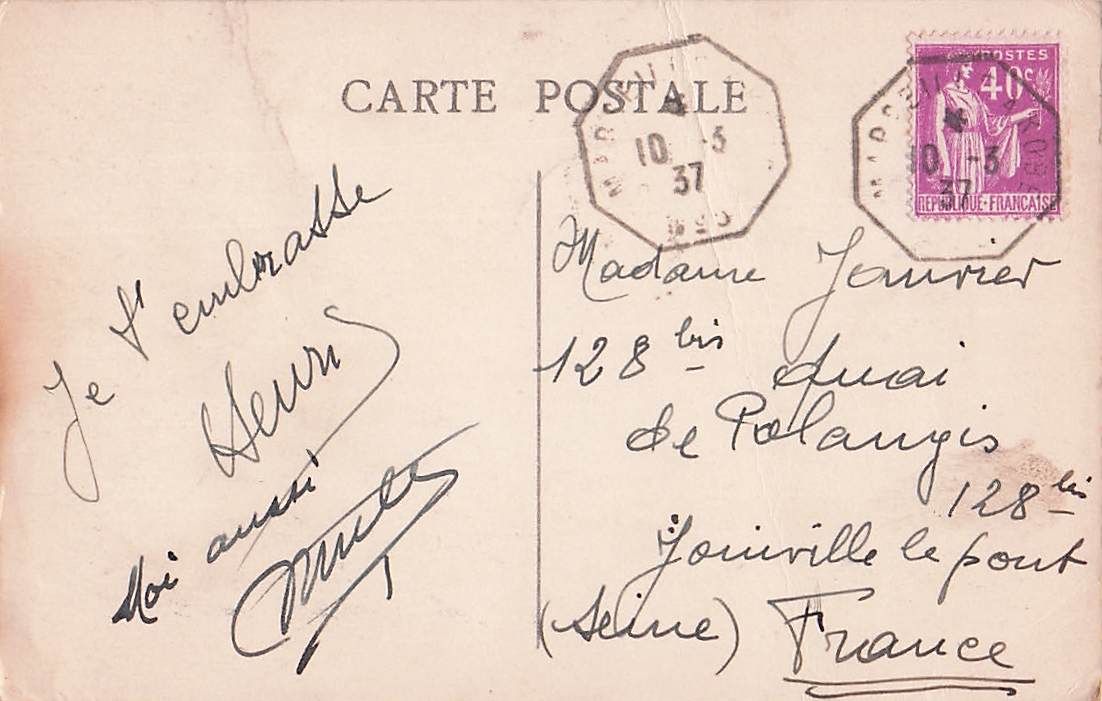 CARTE POSTALE
MARSEILLE
10 -3
37
POSTES
40c
RÉPUBLIQUE-FRANÇAISE
MARSEILLE
10 -3
37
Je t'embrasse
Henri
Moi aussi
Madame Janvier
128 bis Quai
de Polangis
128 bis
Joinville le pont
(Seine) France